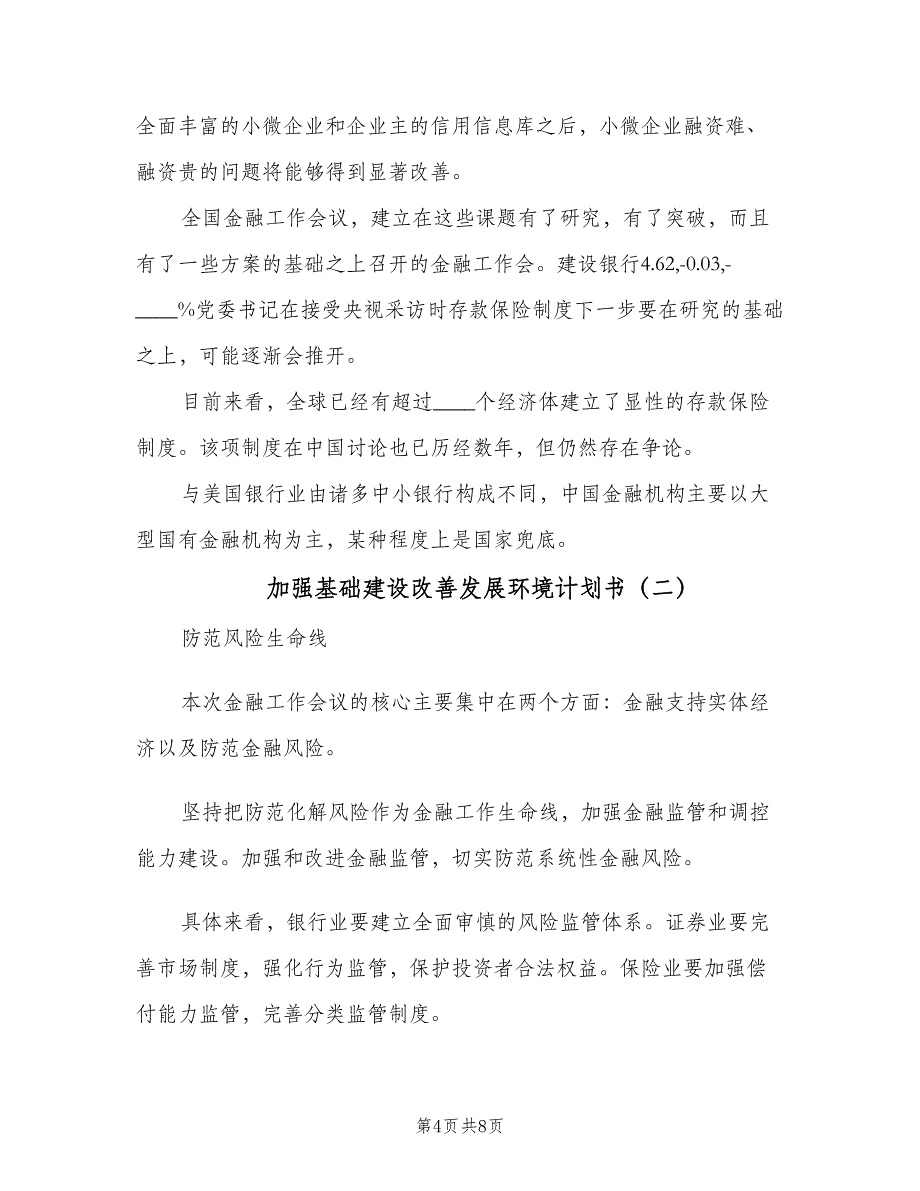 全面丰富的小微企业和企业主的信用信息库之后，小微企业融资难、
融资贵的问题将能够得到显著改善。
全国金融工作会议，建立在这些课题有了研究，有了突破，而且
有了一些方案的基础之上召开的金融工作会。建设银行4.62,-0.03,-
____%党委书记在接受央视采访时存款保险制度下一步要在研究的基础
之上，可能逐渐会推开。
目前来看，全球已经有超过____个经济体建立了显性的存款保险
制度。该项制度在中国讨论也已历经数年，但仍然存在争论。
与美国银行业由诸多中小银行构成不同，中国金融机构主要以大
型国有金融机构为主，某种程度上是国家兜底。
加强基础建设改善发展环境计划书（二）
防范风险生命线
本次金融工作会议的核心主要集中在两个方面：金融支持实体经
济以及防范金融风险。
坚持把防范化解风险作为金融工作生命线，加强金融监管和调控
能力建设。加强和改进金融监管，切实防范系统性金融风险。
具体来看，银行业要建立全面审慎的风险监管体系。证券业要完
善市场制度，强化行为监管，保护投资者合法权益。保险业要加强偿
付能力监管，完善分类监管制度。
第4页 共8页